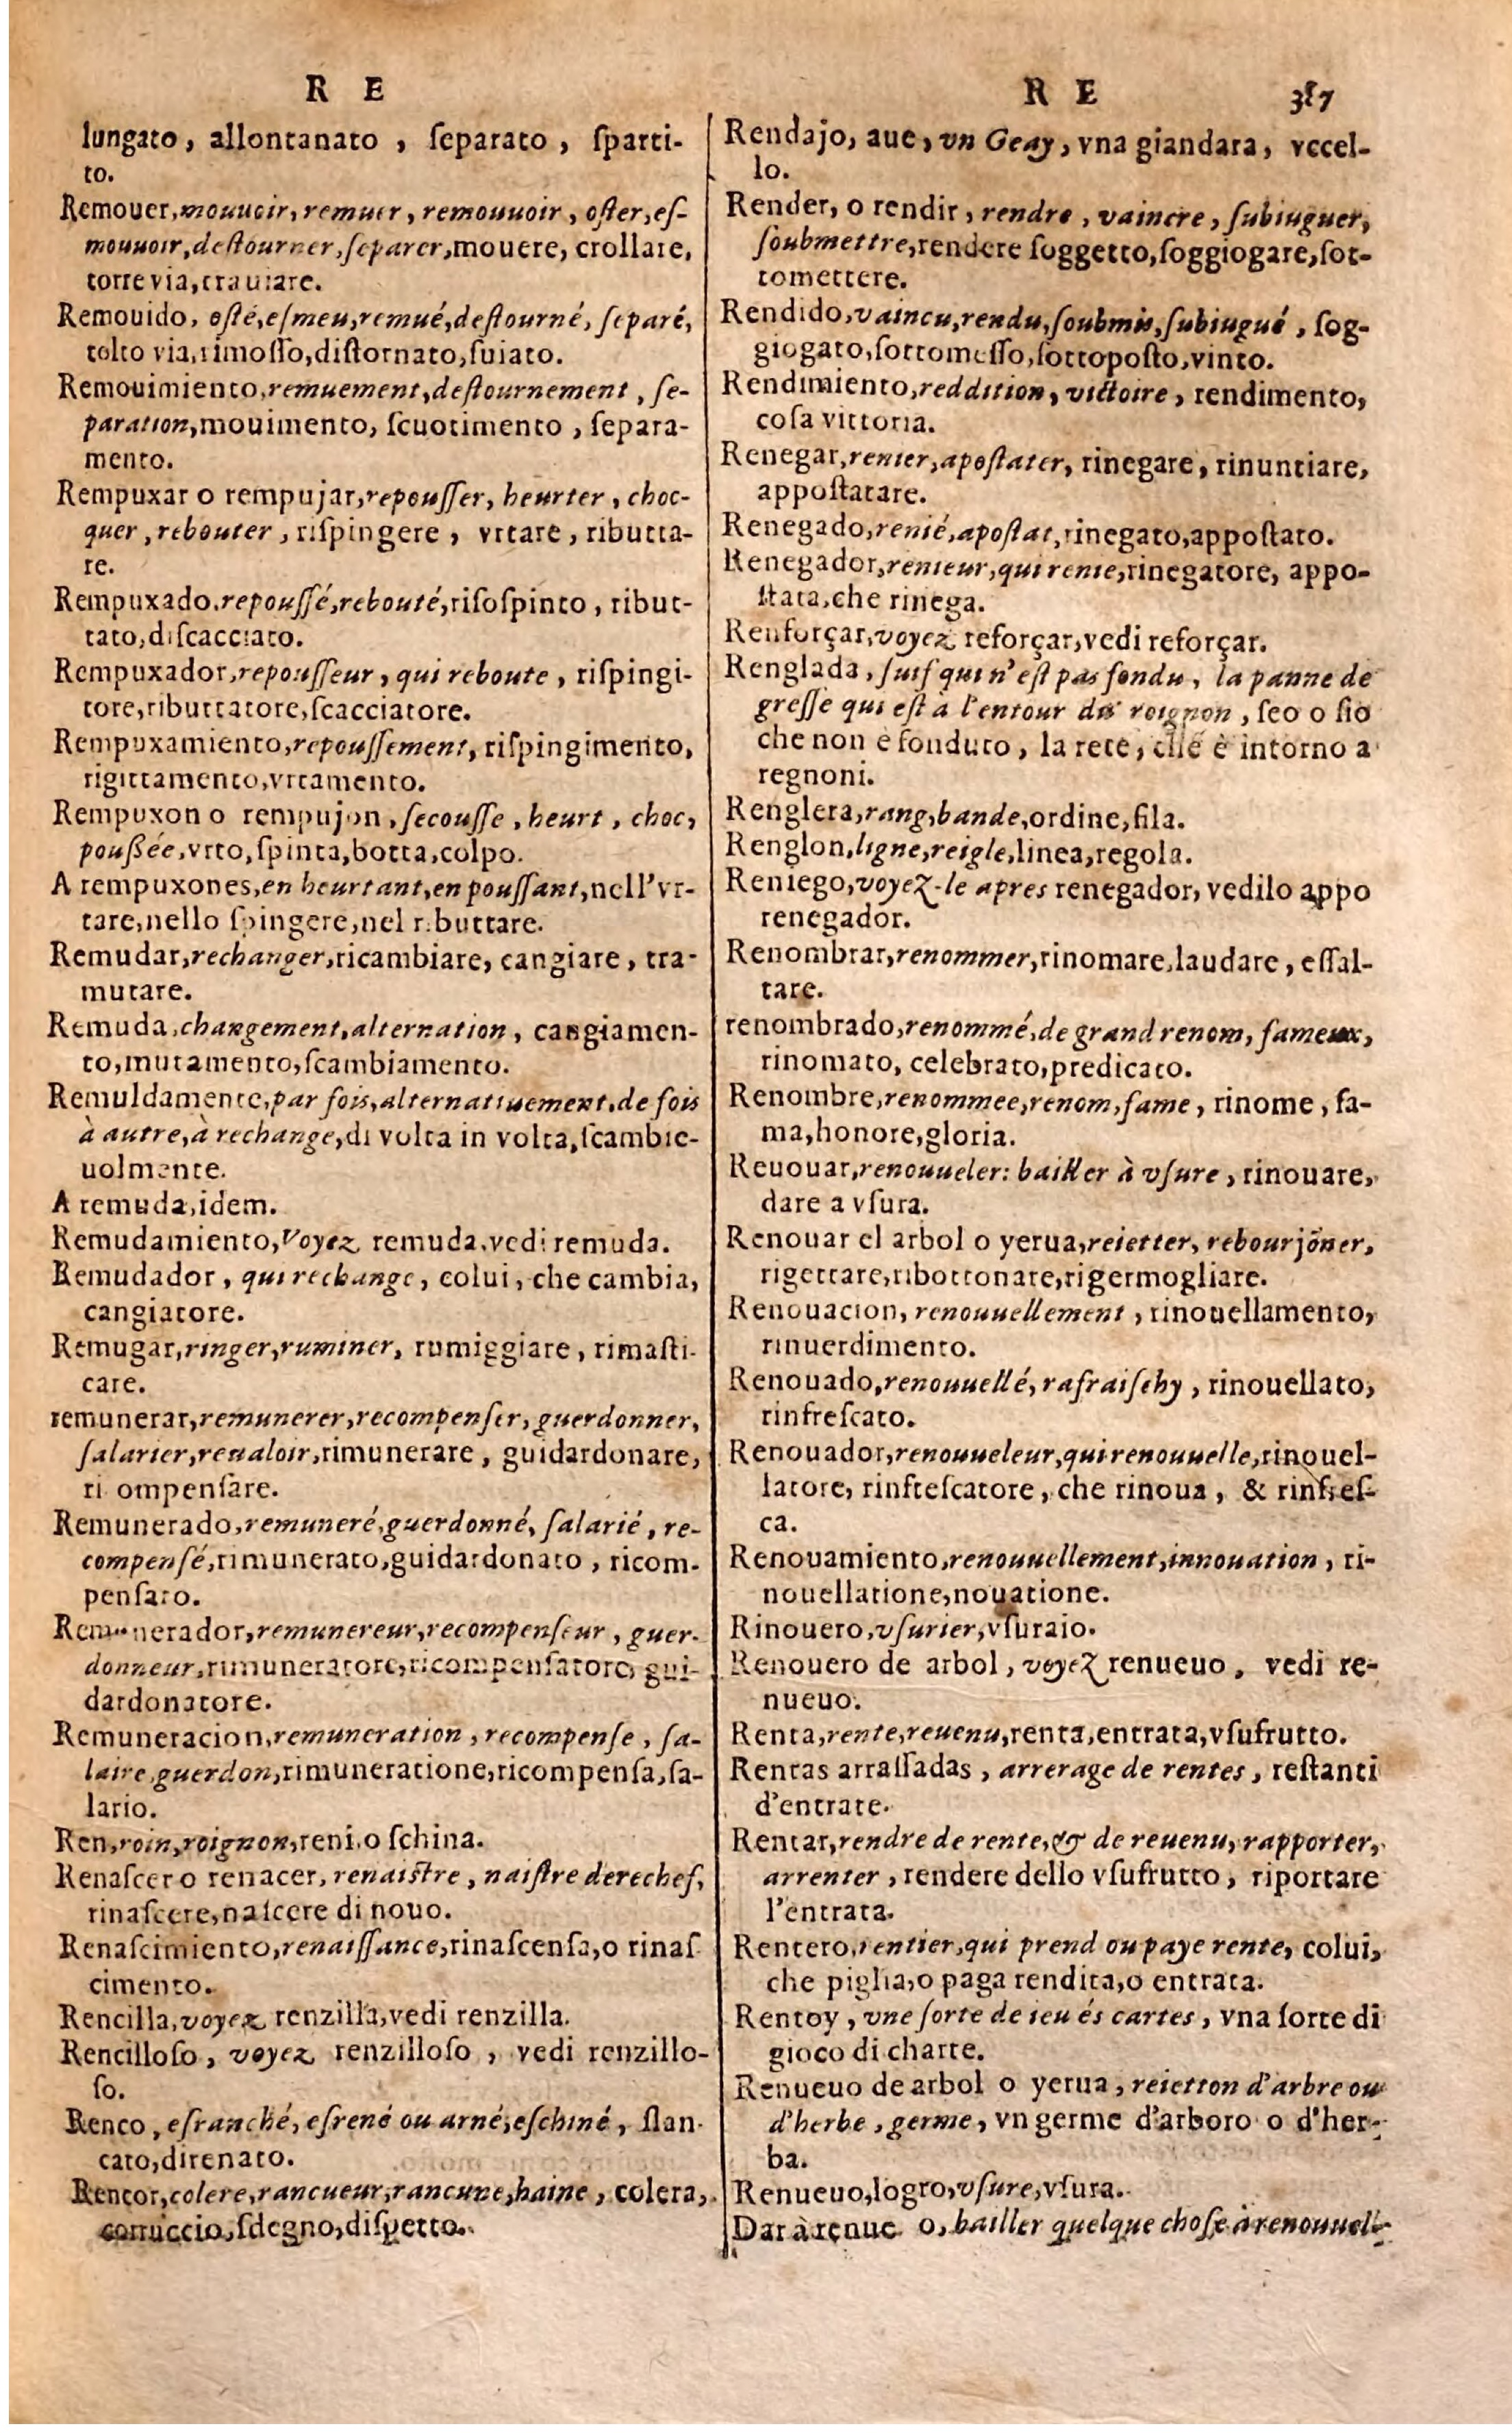 R E
lungato, allontanato, ſeparato, ſparti-
to.
Remouer, mouuoir, remuer, remouuoir, oſter, eſ-
mouuoir, deſtourner, ſeparer, mouere, crollare,
torre via, trauiare.
Remouido, oſté, eſmeu, remué, deſtourné, ſeparé,
tolto via, rimoſſo, diſtornato, ſuiato.
Remouimiento, remuement, deſtournement, ſe-
paration, mouimento, ſcuotimento, ſepara-
mento.
Rempuxar o rempujar, repouſſer, heurter, choc-
quer, rebouter, riſpingere, vrtare, ributta-
re.
Rempuxado, repouſſé, rebouté, riſoſpinto, ribut-
tato, diſcacciato.
Rempuxador, repouſſeur, qui reboute, riſpingi-
tore, ributtatore, ſcacciatore.
Rempuxamiento, repouſſement, riſpingimento,
rigittamento, vrtamento.
Rempuxon o rempujon, ſecouſſe, heurt, choc,
pouſſée, vrto, ſpinta, botta, colpo.
A rempuxones, en heurtant, en pouſſant, nell'vr-
tare, nello ſpingere, nel ributtare.
Remudar, rechanger, ricambiare, cangiare, tra-
mutare.
Remuda, changement, alternation, cangiamen-
to, mutamento, ſcambiamento.
Remuldamente, par fois, alternatiuement, de fois
à autre, à rechange, di volta in volta, ſcambie-
uolmente.
A remuda, idem.
Remudamiento, Voyez remuda, vedi remuda.
Remudador, qui rechange, colui, che cambia,
cangiatore.
Remugar, ringer, ruminer, rumiggiare, rimaſti-
care.
remunerar, remunerer, recompenſer, guerdonner,
ſalarier, reualoir, rimunerare, guidardonare,
ri ompenſare.
Remunerado, remuneré, guerdonné, ſalarié, re-
compenſé, rimunerato, guidardonato, ricom-
penſato.
Remunerador, remunereur, recompenſeur, guer-
donneur, rimuneratore, ricompenſatore, gui-
dardonatore.
Remuneracion, remuneration, recompenſe, ſa-
laire, guerdon, rimuneratione, ricompenſa, ſa-
lario.
Ren, roin, roignon, reni, o ſchina.
Renaſcer o renacer, renaiſtre, naiſtre derechef,
rinaſcere, naſcere di nouo.
Renaſcimiento, renaiſſance, rinaſcenſa, o rinaſ
cimento.
Rencilla, voyez renzilla, vedi renzilla.
Rencilloſo, voyez renzilloſo, vedi renzillo-
ſo.
Renco, efranché, efrené ou arné, eſchiné, ſlan-
cato, direnato.
Rencor, colere, rancueur, rancune, haine, colera,
corruccio, ſdegno, diſpetto.
R E 387
Rendajo, aue, vn Geay, vna giandara, vccel-
lo.
Render, o rendir, rendre, vaincre, ſubiuguer,
ſoubmettre, rendere ſoggetto, ſoggiogare, ſot-
tomettere.
Rendido, vaincu, rendu, ſoubmis, ſubiugué, ſog-
giogato, ſottomeſſo, ſottopoſto, vinto.
Rendimiento, reddition, victoire, rendimento,
coſa vittoria.
Renegar, renier, apoſtater, rinegare, rinuntiare,
appoſtatare.
Renegado, renié, apoſtat, rinegato, appoſtato.
Renegador, renieur, qui renie, rinegatore, appo-
ſtata, che rinega.
Renforçar, voyez reforçar, vedi reforçar.
Renglada, ſuif qui n'eſt pas fondu, la panne de
greſſe qui eſt à l'entour du roignon, ſeo o ſio
che non è fonduto, la rete, che è intorno a
regnoni.
Renglera, rang, bande, ordine, fila.
Renglon, ligne, reigle, linea, regola.
Reniego, voyez-le apres renegador, vedilo appo
renegador.
Renombrar, renommer, rinomare, laudare, eſſal-
tare.
renombrado, renommé, de grand renom, fameux,
rinomato, celebrato, predicato.
Renombre, renommee, renom, fame, rinome, fa-
ma, honore, gloria.
Reuouar, renouueler: bailler à vſure, rinouare,
dare a vſura.
Renouar el arbol o yerua, reietter, rebourjõner,
rigettare, ribottonare, rigermogliare.
Renouacion, renouuellement, rinouellamento,
rinuerdimento.
Renouado, renouuellé, rafraiſchy, rinouellato,
rinfreſcato.
Renouador, renouueleur, qui renouuelle, rinouel-
latore, rinfreſcatore, che rinoua, & rinfreſ-
ca.
Renouamiento, renouuellement, innouation, ri-
nouellatione, nouatione.
Rinouero, vſurier, vſuraio.
Renouero de arbol, voyez renueuo, vedi re-
nueuo.
Renta, rente, reuenu, renta, entrata, vſufrutto.
Rentas arraſſadas, arrerage de rentes, reſtanti
d'entrate.
Rentar, rendre de rente, & de reuenu, rapporter,
arrenter, rendere dello vſufrutto, riportare
l'entrata.
Rentero, rentier, qui prend ou paye rente, colui,
che piglia, o paga rendita, o entrata.
Rentoy, vne ſorte de ieu és cartes, vna ſorte di
gioco di charte.
Renueuo de arbol o yerua, reietton d'arbre ou
d'herbe, germe, vn germe d'arboro o d'her-
ba.
Renueuo, logro, vſure, vſura.
Dar à renue o, bailler quelque choſe à renouuell-